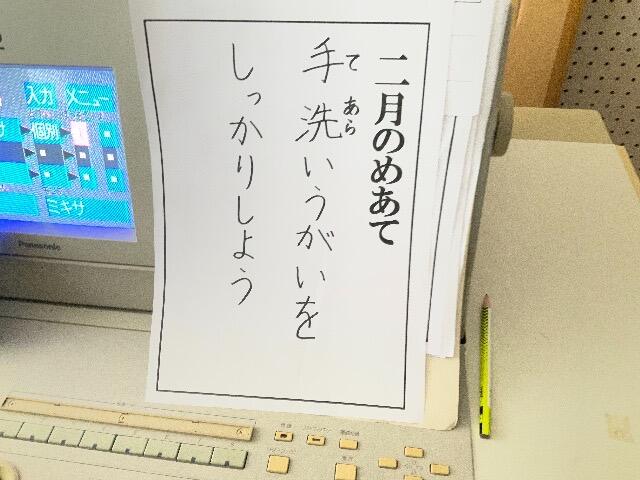 二月のめあて
手洗いうがいを
てあら
しっかりしよう
入力 メニュー
個別
ミキサ
Panasonic